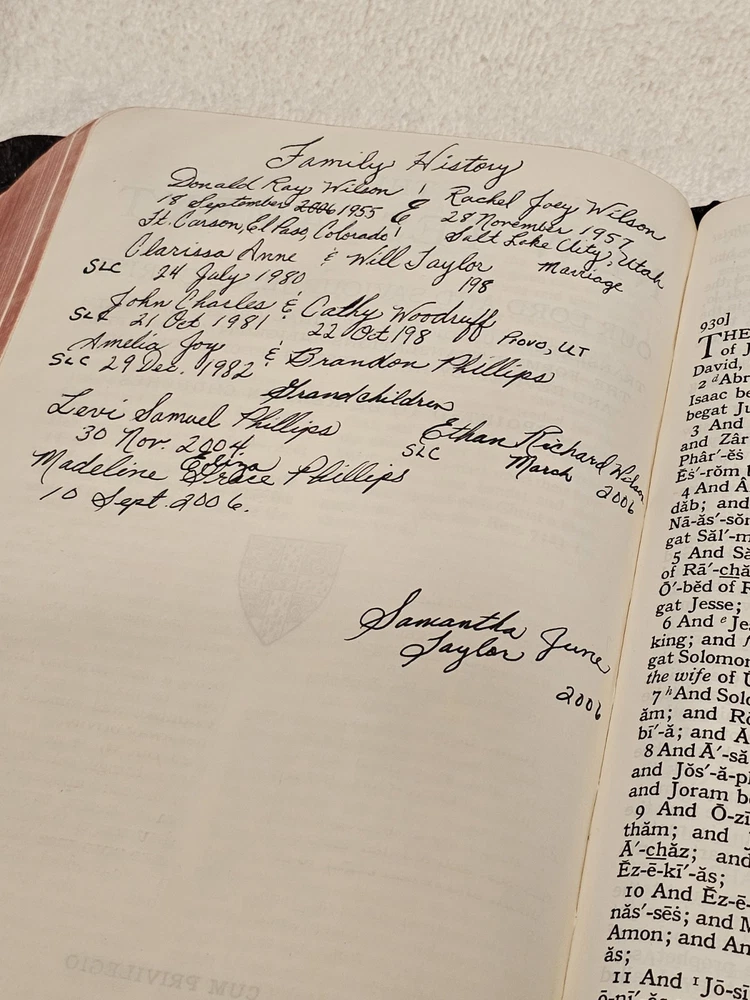 Family History
Donald Ray Wilson & Rachel Joey Wilson
18 September 2006 1955 & 28 November 1957
Ft. Carson, El Paso, Colorado Salt Lake City, Utah
Clarissa Anne & Will Taylor Marriage
SLC 24 July 1980 198
John Charles & Cathy Woodruff
SLC 21 Oct 1981 22 Oct 198 Provo, UT
Amelia Joy & Brandon Phillips
SLC 29 Dec. 1982
Grandchildren
Levi Samuel Phillips
30 Nov. 2004
Ethan Richard Wilson
SLC March
2006
Eliza
Madeline Grace Phillips
10 Sept. 2006.
Samantha June
Taylor
2006
CUM PRIVILEGIO
930]
THE
of J
David,
2 d Abr
Isaac be
begat Ju
3 And
and Zâr
Phâr'-ĕṡ
Ĕṡ'-rŏm b
4 And Â
dăb; and
Nā-ăs'-sŏn
gat Săl'-m
5 And Să
of Rā'-chă
Ō'-bĕd of R
gat Jesse;
6 And e Je
king; and
gat Solomon
the wife of
7 h And Solo
ăm; and Rō
bī'-ă; and A
8 And Ā'-să
and Jŏs'-ă-ph
and Joram be
9 And Ō-zī
thăm; and
Ā'-chăz; and
Ĕz-ē-kī'-ăs;
10 And Ĕz-ē-
năs'-sēṡ; and M
Amon; and Am
ăs;
11 And 1 Jō-sī
ō-nī'-ăs